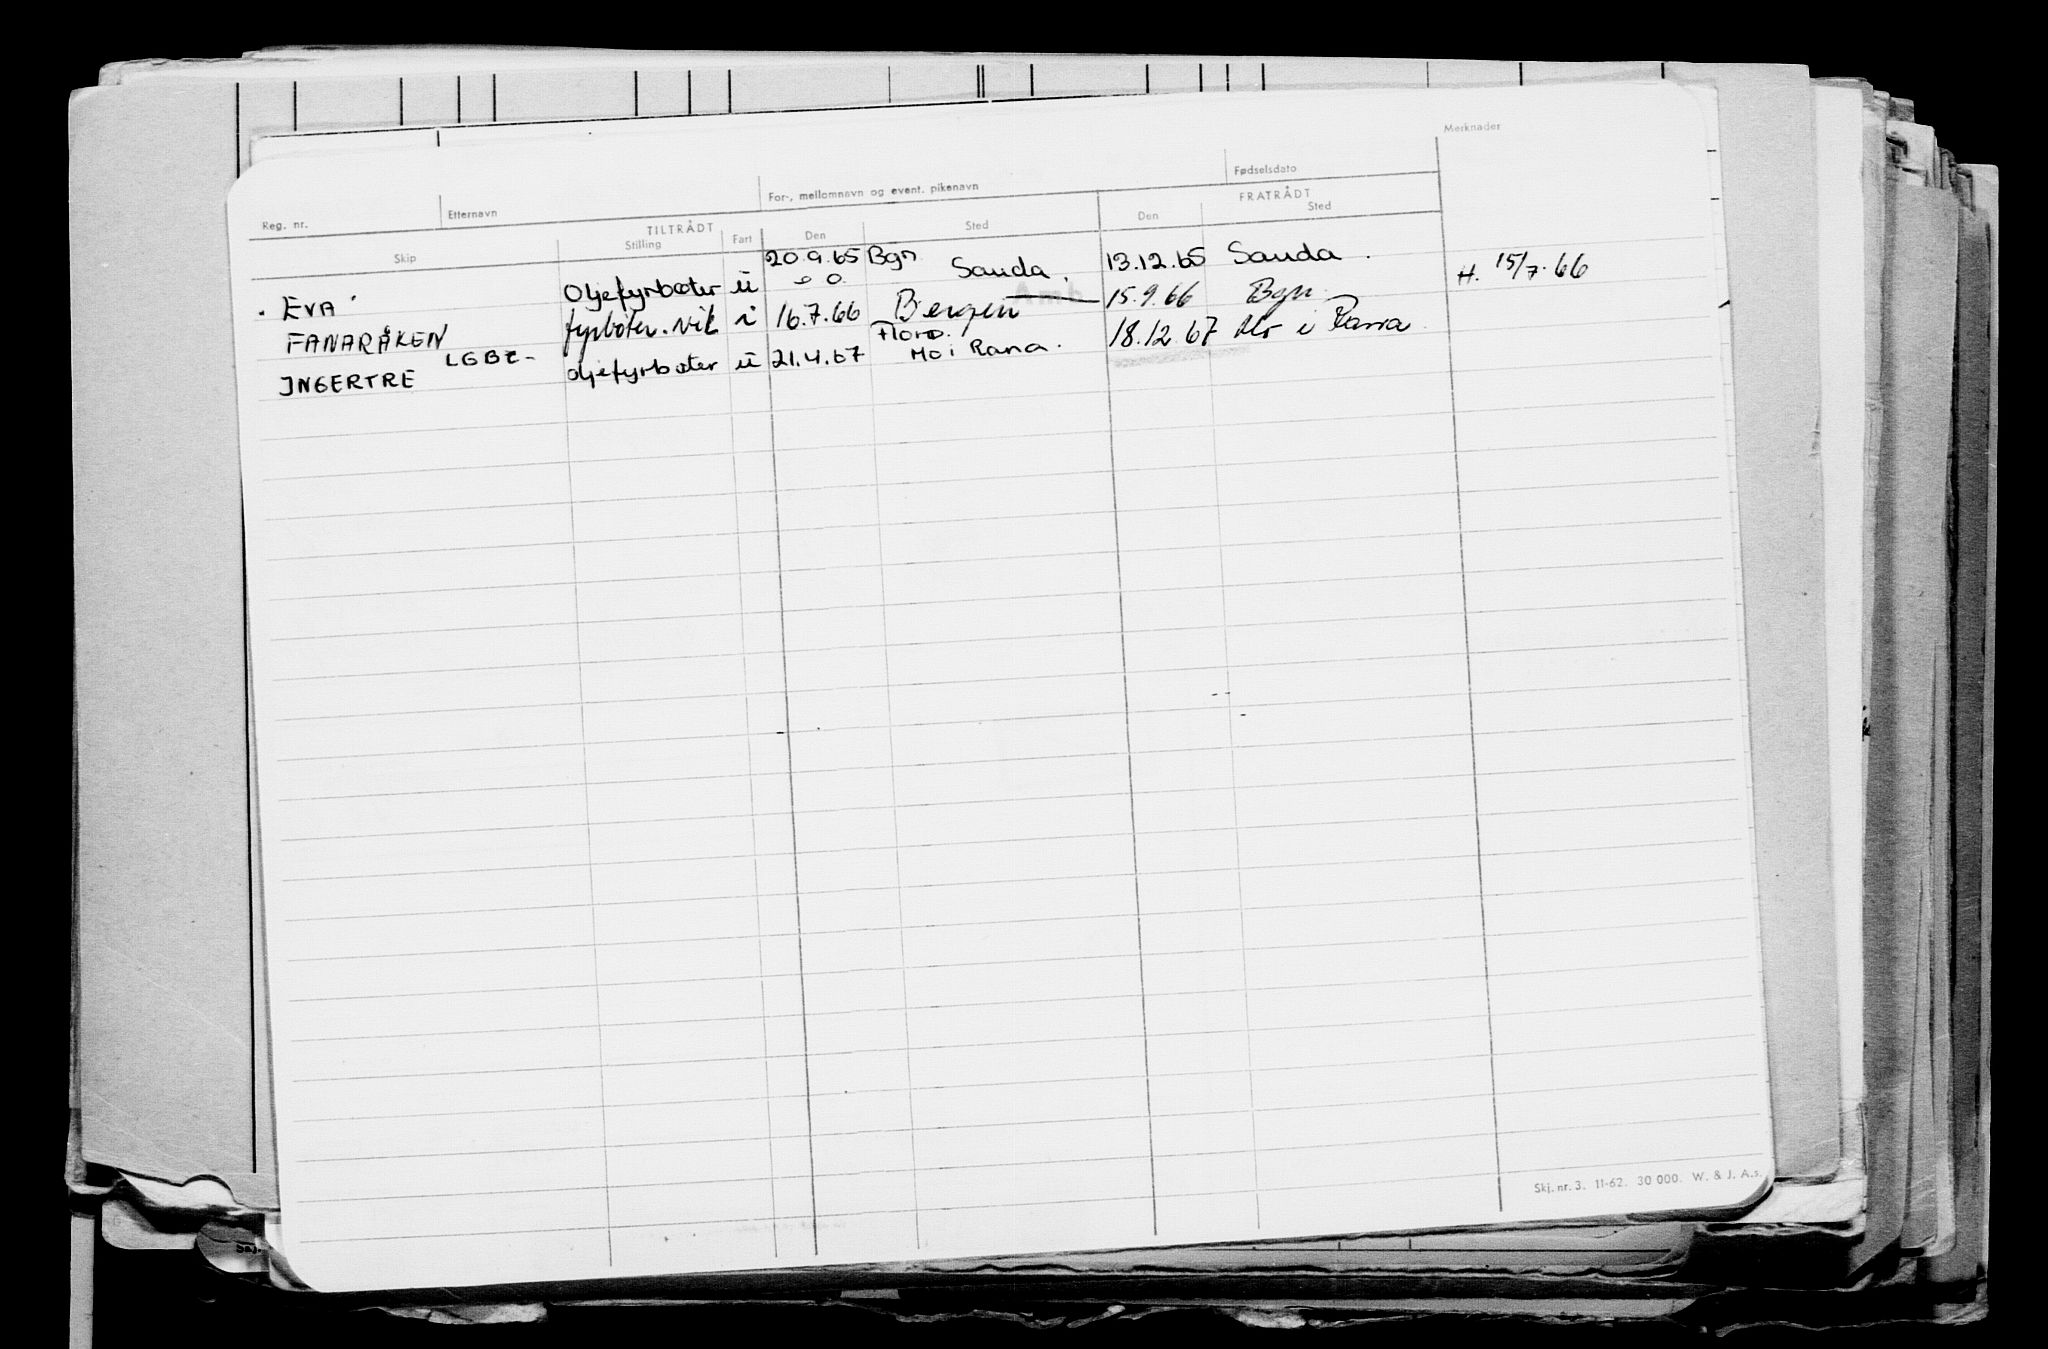 Merknader
Reg. nr. Etternavn For-, mellomnavn og event. pikenavn Fødselsdato
TILTRÅDT FRATRÅDT
Skip Stilling Fart Den Sted Den Sted
20.9.65 Bgn
EVA Oljefyrbøter ü Sauda. 13.12.65 Sauda.
FANARÅKEN fyrbøter. i 16.7.66 Bergen 15.9.66 Bgn. H. 15/7.66
Florø.
INGERTRE LGBZ- oljefyrbøter ü 21.4.67 Mo i Rana. 18.12.67 Mo i Rana.
Skj. nr. 3. 11-62. 30 000. W. & J. A.s.